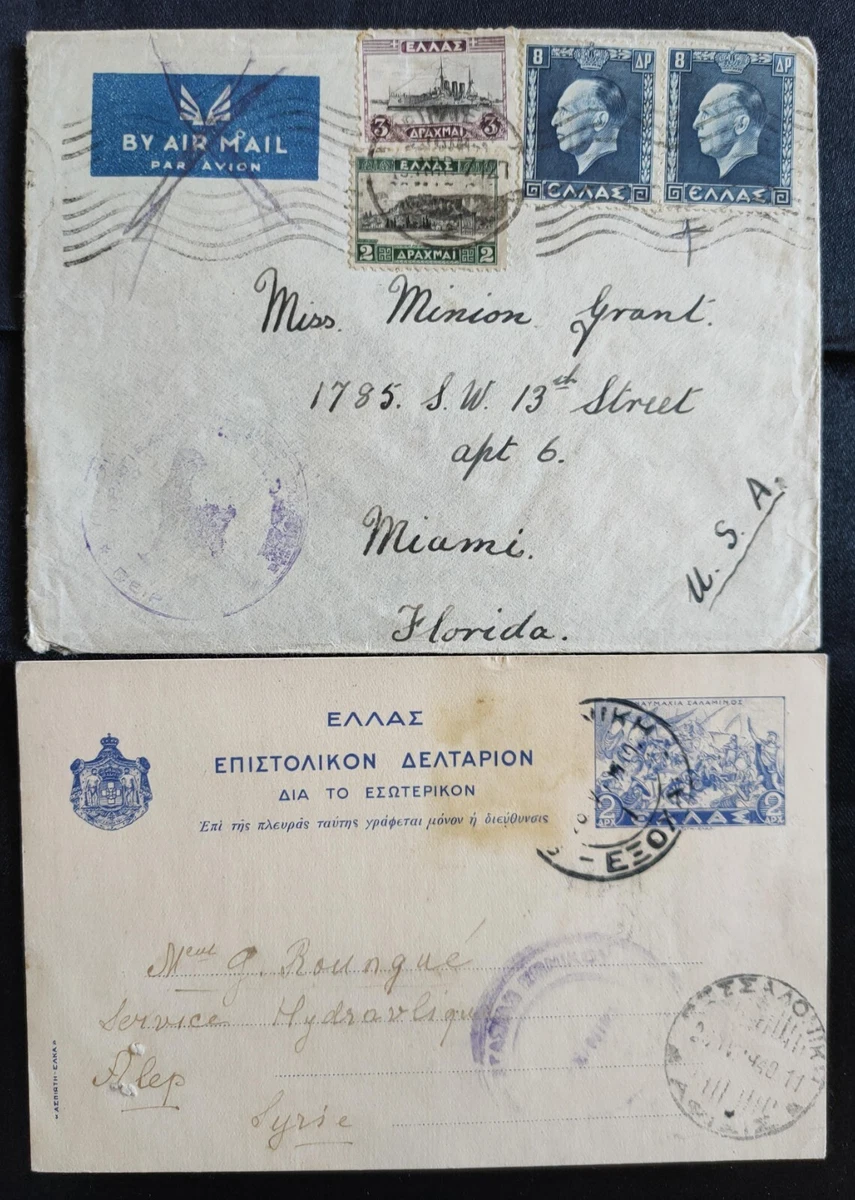 BY AIR MAIL
PAR AVION
ΕΛΛΑΣ
3 ΔΡΑΧΜΑΙ 3
ΕΛΛΑΣ
2 ΔΡΑΧΜΑΙ 2
8 ΔΡ
ΕΛΛΑΣ
8 ΔΡ
ΕΛΛΑΣ
Miss. Minion Grant.
1785. S.W. 13th Street
apt 6.
Miami.
Florida.
U.S.A.
ΠΕΙΡ
ΕΛΛΑΣ
ΕΠΙΣΤΟΛΙΚΟΝ ΔΕΛΤΑΡΙΟΝ
ΔΙΑ ΤΟ ΕΣΩΤΕΡΙΚΟΝ
Ἐπὶ τῆς πλευρᾶς ταύτης γράφεται μόνον ἡ διεύθυνσις
ΝΑΥΜΑΧΙΑ ΣΑΛΑΜΙΝΟΣ
2 ΔΡΣ ΕΛΛΑΣ 2 ΔΡΣ
ΝΙΚΗ
ΕΞΟΔ
G. Roungué
Service Hydraulique
Alep
Syrie
ΘΕΣΣΑΛΟΝΙΚΗ
ΑΦΙΞΙΣ
ΑΣΠΙΩΤΗ-ΕΛΚΑ